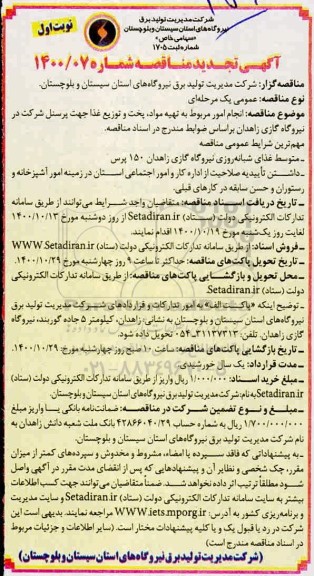 شرکت مدیریت تولید برق
نیروگاه‌های استان سیستان وبلوچستان
«سهامی خاص»
شماره ثبت ۱۷۰۵
نوبت اول
آگهی تجدید مناقصه شماره ۱۴۰۰/۰۷
مناقصه‌گزار: شرکت مدیریت تولید برق نیروگاه‌های استان سیستان و بلوچستان.
نوع مناقصه: عمومی یک مرحله‌ای
موضوع مناقصه: انجام امور مربوط به تهیه مواد، پخت و توزیع غذا جهت پرسنل شرکت در
نیروگاه گازی زاهدان براساس ضوابط مندرج در اسناد مناقصه.
مهم‌ترین شرایط عمومی مناقصه
ـ متوسط غذای شبانه‌روزی نیروگاه گازی زاهدان ۱۵۰ پرس
ـ داشتن تأییدیه صلاحیت از اداره کار و امور اجتماعی استان در زمینه امور آشپزخانه و
رستوران و حسن سابقه در کارهای قبلی.
ـ تاریخ دریافت اسناد مناقصه: متقاضیان واجد شرایط می‌توانند از طریق سامانه
تدارکات الکترونیکی دولت (ستاد) Setadiran.ir از روز دوشنبه مورخ ۱۴۰۰/۱۰/۱۳
لغایت روز یک‌شنبه مورخ ۱۴۰۰/۱۰/۱۹ اقدام نمایند.
ـ فروش اسناد: از طریق سامانه تدارکات الکترونیکی دولت (ستاد) WWW.Setadiran.ir
ـ تاریخ تحویل پاکت‌های مناقصه: حداکثر تا ساعت ۹ روز چهارشنبه مورخ ۱۴۰۰/۱۰/۲۹.
ـ محل تحویل و بازگشایی پاکت‌های مناقصه: از طریق سامانه تدارکات الکترونیکی
دولت (ستاد) Setadiran.ir
ـ توضیح اینکه «پاکت الف» به امور تدارکات و قراردادهای شرکت مدیریت تولید برق
نیروگاه‌های استان سیستان و بلوچستان به نشانی: زاهدان، کیلومتر ۵ جاده گوربند، نیروگاه
گازی زاهدان. تلفن: ۳۱۱۳۷۳۱۳-۰۵۴ تحویل داده شود.
ـ تاریخ بازگشایی پاکت‌های مناقصه: ساعت ۱۰ صبح روز چهارشنبه مورخ ۱۴۰۰/۱۰/۲۹.
ـ مدت قرارداد: یک سال خورشیدی
ـ مبلغ خرید اسناد: ۱/۰۰۰/۰۰۰ ریال واریز از طریق سامانه تدارکات الکترونیکی دولت (ستاد)
Setadiran.ir به نام: شرکت مدیریت تولید برق نیروگاه‌های استان سیستان وبلوچستان.
ـ مبلغ و نوع تضمین شرکت در مناقصه: ضمانت‌نامه بانکی یا واریز مبلغ
۱/۷۰۰/۰۰۰/۰۰۰ ریال به شماره حساب ۴۲۸۶۶۰۴۰/۲۹ بانک ملت شعبه دانش زاهدان به
نام شرکت مدیریت تولید برق نیروگاه‌های استان سیستان و بلوچستان.
ـ به پیشنهاداتی که فاقد سپرده یا امضاء، مشروط و مخدوش و سپرده‌های کمتر از میزان
مقرر، چک شخصی و نظایر آن و پیشنهادهایی که پس از انقضای مدت مقرر در آگهی واصل
شود مطلقا ترتیب اثر داده نخواهد شد. ضمنا متقاضیان می‌توانند جهت کسب اطلاعات
بیشتر به سایت سامانه تدارکات الکترونیکی دولت (ستاد) Setadiran.ir و سایت مدیریت
و برنامه‌ریزی کشور به آدرس: WWW.iets.mporg.ir مراجعه نمایند. بدیهی است این
شرکت در رد یا قبول یک و یا کلیه پیشنهادات مختار است. (سایر اطلاعات و جزئیات مربوط
در اسناد مناقصه مندرج است)
(شرکت مدیریت تولید برق نیروگاه‌های استان سیستان و بلوچستان)